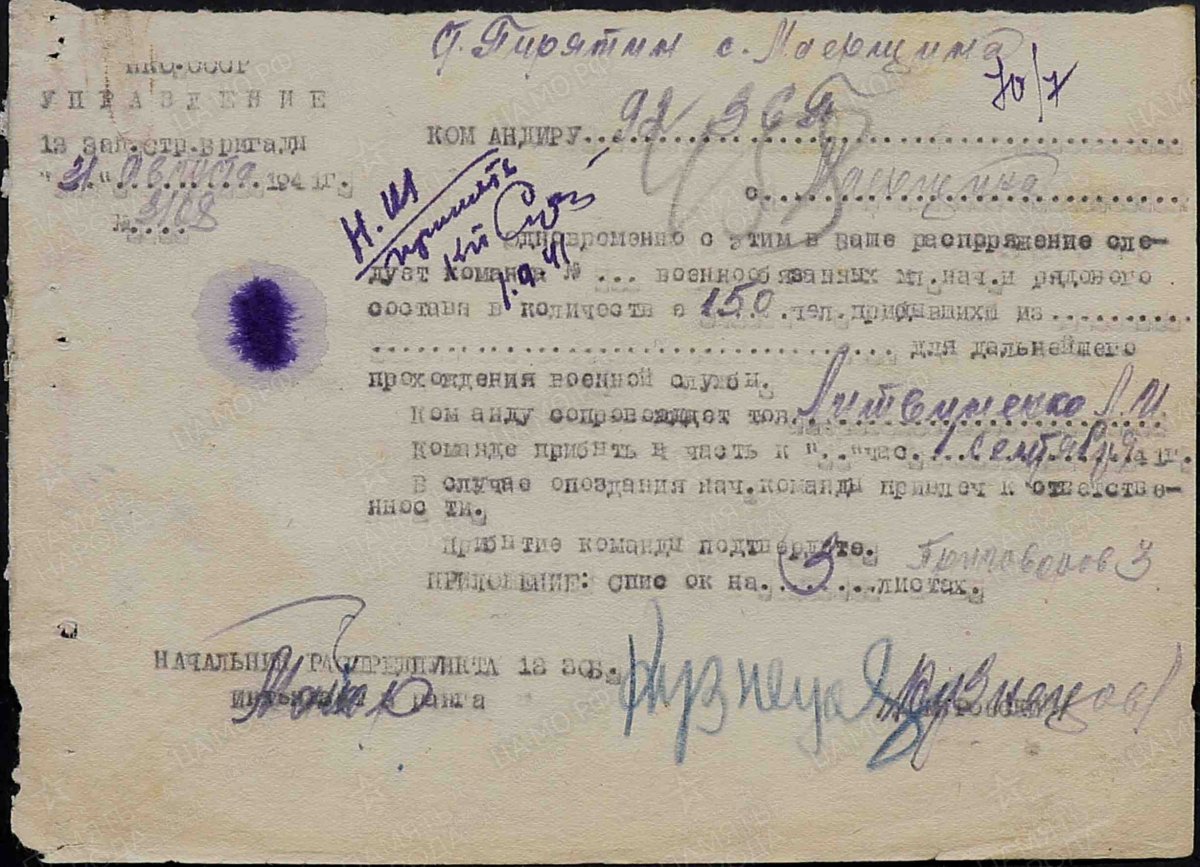 г. Пирятин с. Маерщина
70/7
НКО-СССР
УПРАВЛЕНИЕ
12 зап.стр.бригады
"31." Августа 1941г.
№ 3108
КОМ АНДИРУ.. 92 ЗСП
с. Маерщина
Н. Ш
принять
1.9.41
Одновременно с этим в ваше распоряжение сле-
дует команда № ... военнообязанных мл.нач.и рядового
состава в количеств е 150 .чел.прибывших из ..........
.................................. для дальнейшего
прохождения военной службы.
Ком анду сопровождает тов. Литвиненко Л.И.
Команде прибыть в часть к ".."час. 1 сентября 41г.
В случае опоздания нач.команды привлеч к ответстве-
ннос ти.
Прибытие команды подтвердите.
ПРИЛОЖЕНИЕ: Спис ок на. 3 ...листах.
НАЧАЛЬНИК РАСПРЕДПУНКТА 12 ЗСБ.
ранга
Майор
Кузнецов